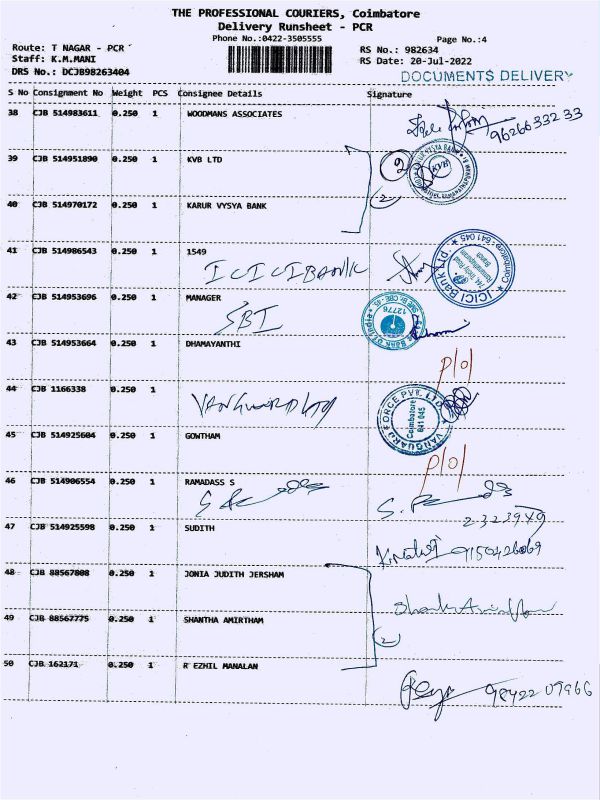 THE PROFESSIONAL COURIERS, Coimbatore
Delivery Runsheet - PCR
Phone No.:0422-3505555
Page No.:4
Route: T NAGAR - PCR
RS No.: 982634
Staff: K.M.MANI
RS Date: 20-Jul-2022
DRS No.: DCJB98263404
DOCUMENTS DELIVERY
S No Consignment No Weight PCS Consignee Details Signature
38 CJB 514983611 0.250 1 WOODMANS ASSOCIATES
9626633233
39 CJB 514951890 0.250 1 KVB LTD
2
KVB
40 CJB 514970172 0.250 1 KARUR VYSYA BANK
2
41 CJB 514986543 0.250 1 1549
ICICI BANK
ICICI Bank
Coimbatore - 641 045
42 CJB 514953696 0.250 1 MANAGER
SBI
12776
43 CJB 514953664 0.250 1 DHAMAYANTHI
P/O/
44 CJB 1166338 0.250 1
VANGUARD
VANGUARD FORCE PVT. LTD.
Coimbatore
641 045
45 CJB 514925604 0.250 1 GOWTHAM
P/O/
46 CJB 514906554 0.250 1 RAMADASS S
2323949
47 CJB 514925598 0.250 1 SUDITH
9150426069
48 CJB 88567808 0.250 1 JONIA JUDITH JERSHAM
49 CJB 88567775 0.250 1 SHANTHA AMIRTHAM
2
50 CJB 162171 0.250 1 R EZHIL MANALAN
98422 09966